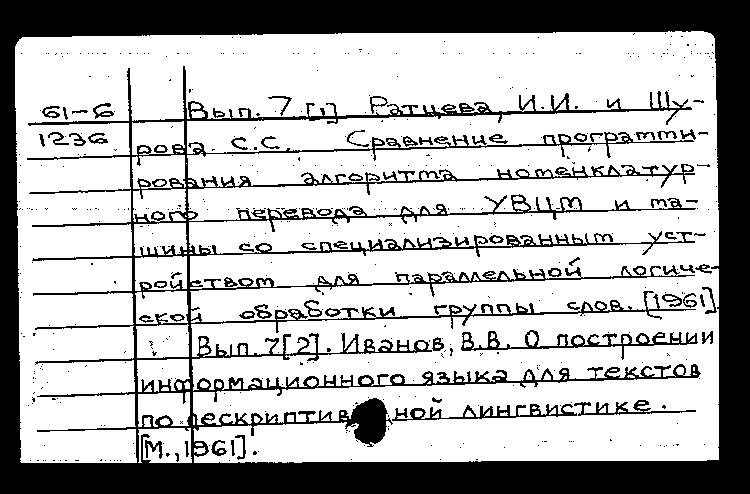 61-6 Вып. 7 [1] Ратцева, И.И. и Шу-
1236 рова С.С. Сравнение программи-
рования алгоритма номенклатур-
ного перевода для УВЦМ и ма-
шины со специализированным уст-
ройством для параллельной логиче-
ской обработки группы слов. [1961]
Вып. 7[2]. Иванов, В.В. О построении
информационного языка для текстов
по дескриптивной лингвистике.
[М., 1961].